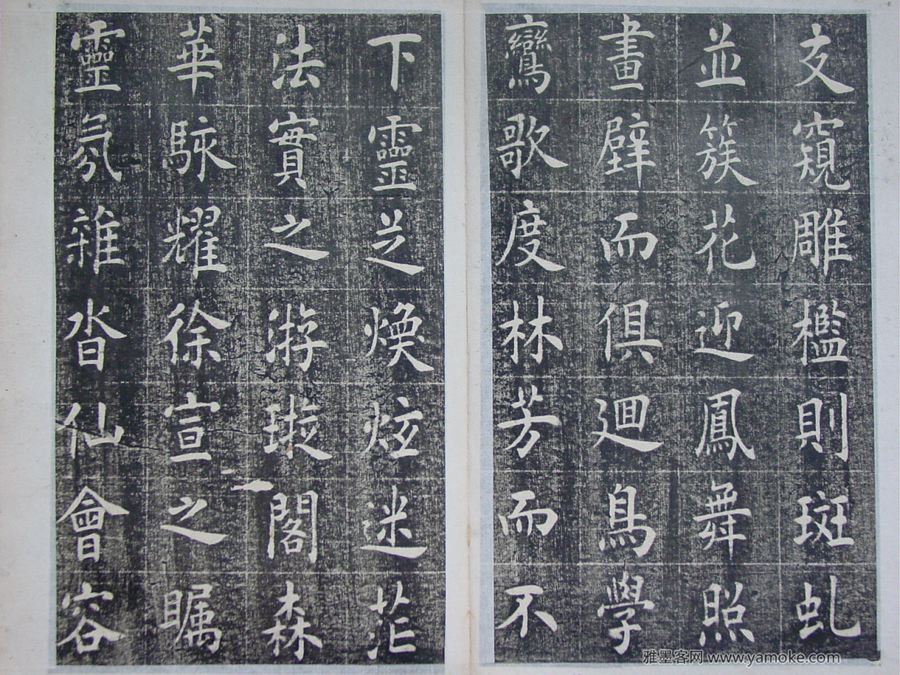 支窺雕檻則斑虬
並簇花迎鳳舞照
畫壁而俱迴鳥學
鸞歌度林芳而不
下靈芝煥炫迷茫
法實之游璇閣森
華駼耀徐宣之矚
靈氛雜沓仙會容
雅墨客网 www.yamoke.com